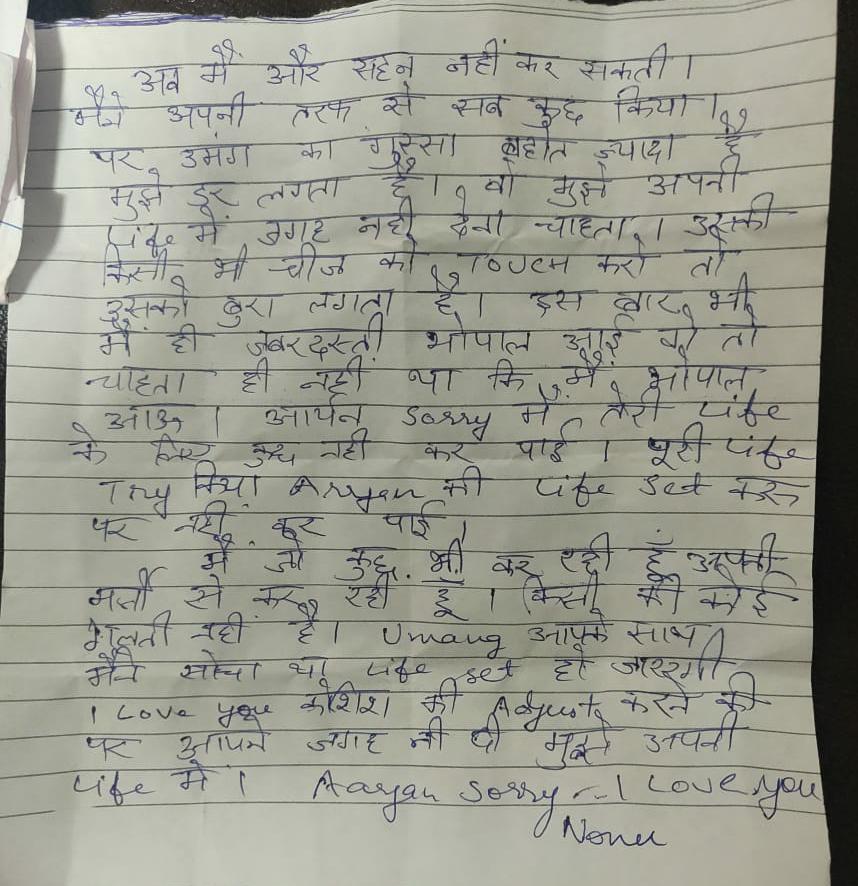 अब मैं और सहन नहीं कर सकती।
मैंने अपनी तरफ से सब कुछ किया।
पर उमंग का गुस्सा बहोत ज्यादा है
मुझे डर लगता है। वो मुझे अपनी
Life में जगह नही देना चाहता। उसकी
किसी भी चीज को Touch करो तो
उसको बुरा लगता है। इस बार भी
मैं ही जबरदस्ती भोपाल आई वो तो
चाहता ही नही था कि मैं भोपाल
आऊ। Sorry मैं तेरी Life
के लिए कुछ नही कर पाई। पूरी Life
Try किया Aryan की Life set करू
पर नही कर पाई।
मैं जो कुछ भी कर रही हूँ अपनी
मर्जी से कर रही हूँ। किसी की कोई
गलती नही है। Umang आपके साथ
मैंने सोचा था Life set हो जाएगी
I Love you कोशिश की Adjust करने की
पर आपने जगह नी दी मुझे अपनी
Life में। Aaryan Sorry... I Love you
Nonu